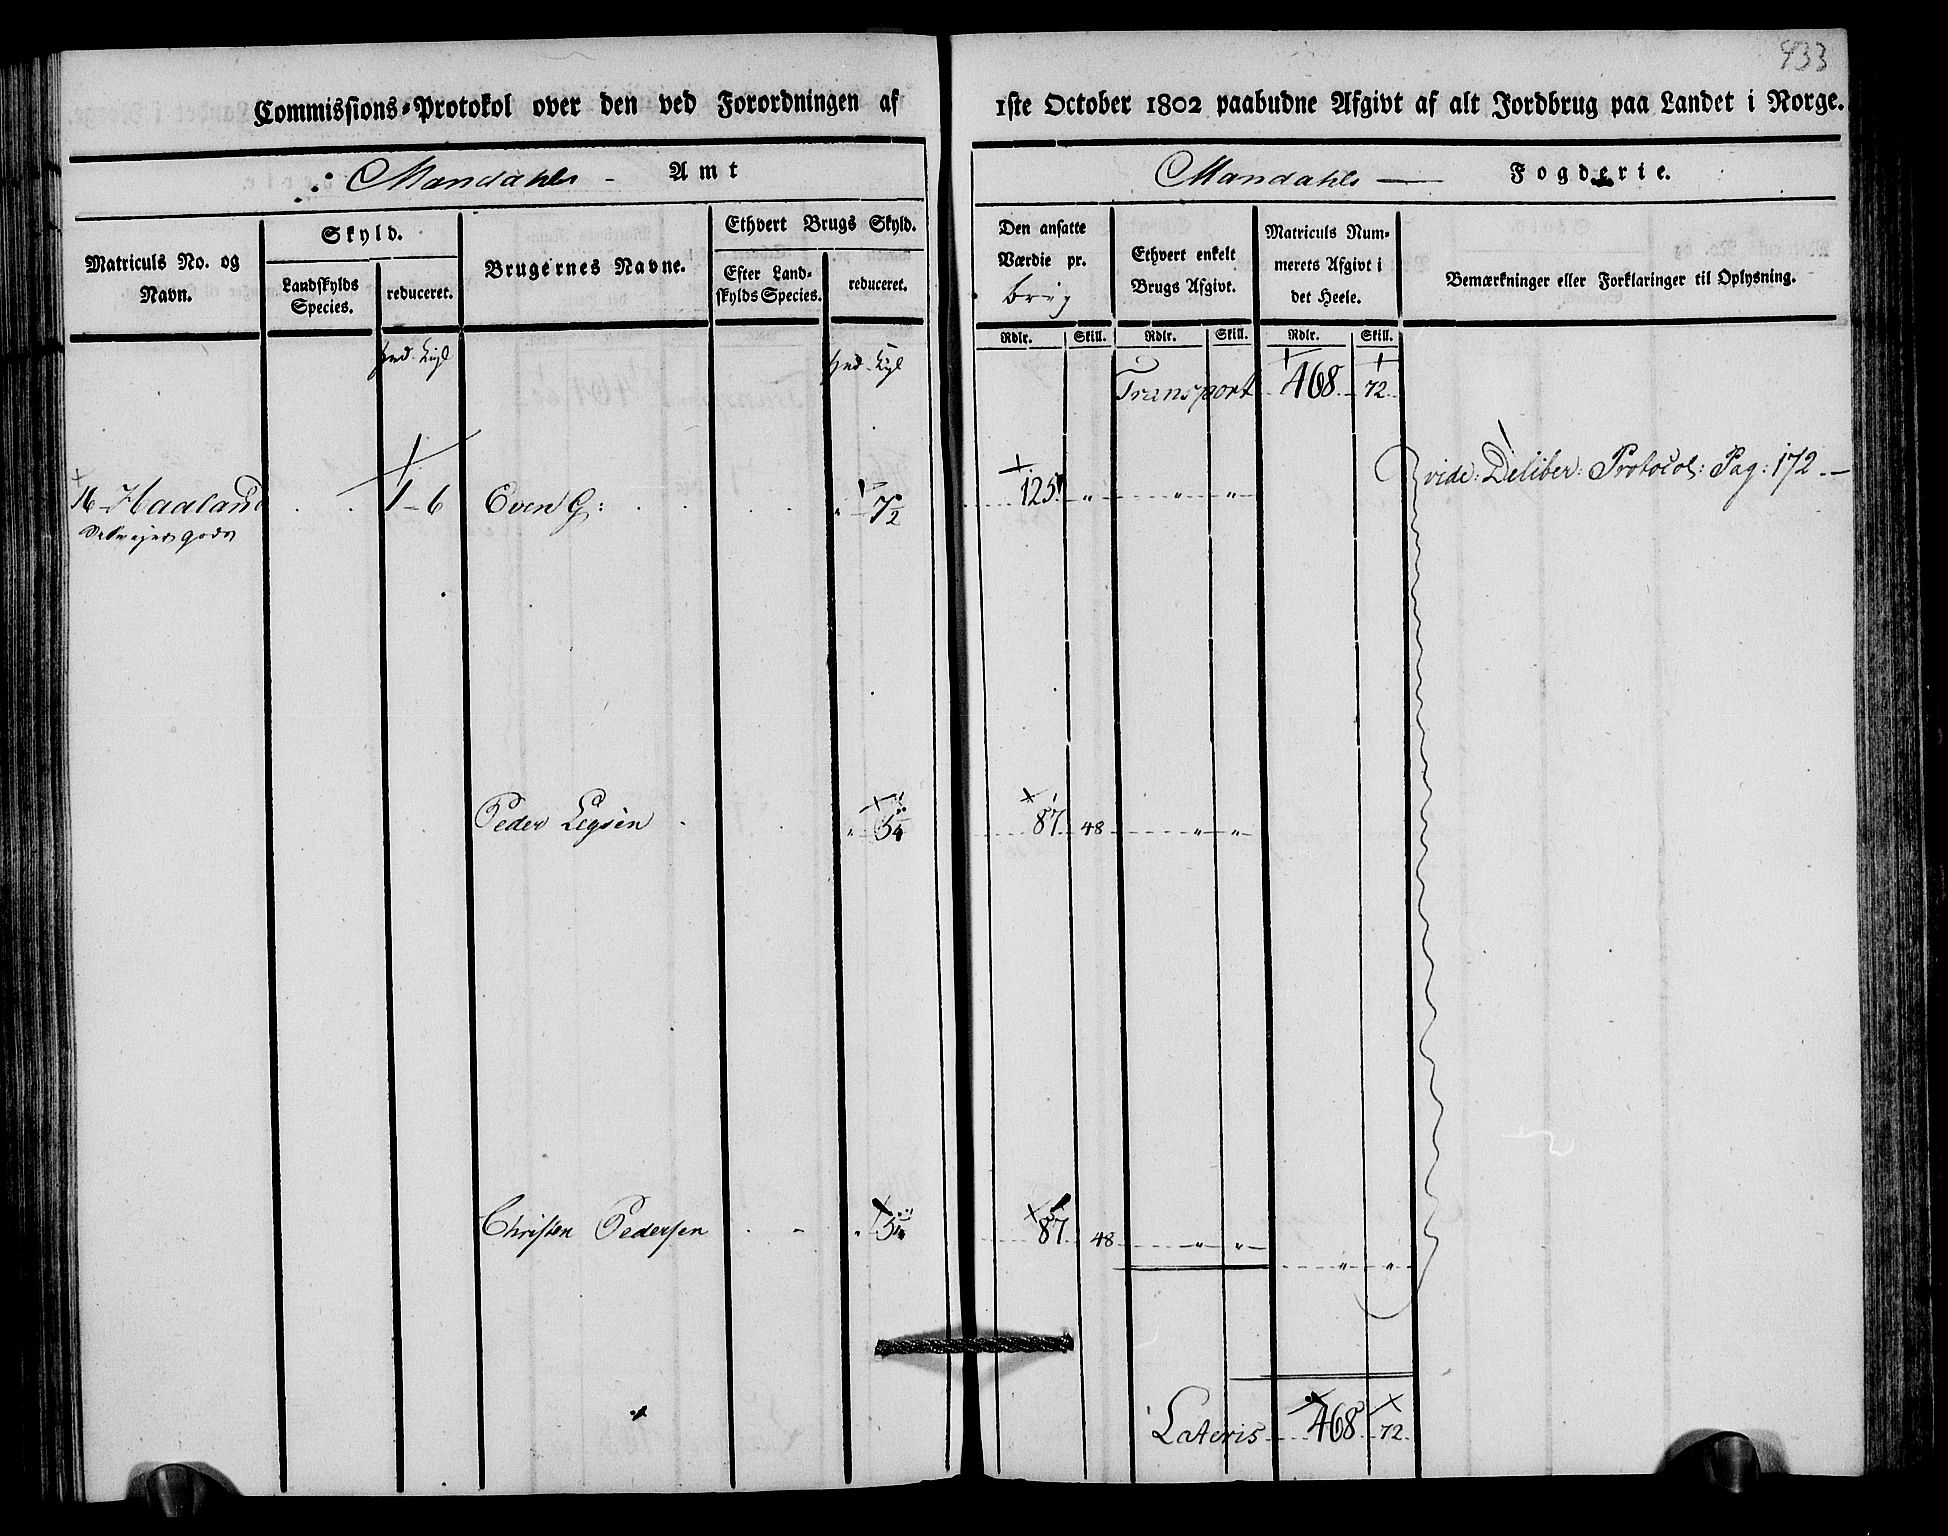 433
Commissions-Protokol over den ved Forordningen af 1ste October 1802 paabudne Afgivt af alt Jordbrug paa Landet i Norge.
Mandahls Amt Mandahls Fogderie.
Matriculs No. og Navn.
Skyld.
Landskylds Species.
reduceret.
Brugernes Navne.
Ethvert Brugs Skyld.
Efter Landskylds Species.
reduceret.
Den ansatte Værdie pr. brug
Ethvert enkelt Brugs Afgivt.
Matriculs Nummerets Afgivt i det Heele.
Bemærkninger eller Forklaringer til Oplysning.
Rdlr. Skill. Rdlr. Skill. Rdlr. Skill.
Transport 468 72
16 Haaland 1-6 Even G: " 7½ 125 " " " vide: Deliber: Protocol: Pag: 172
Selvejergods
Peder 87 48 " "
Christen Pedersen 87 48 " "
" "
Lateris 468 72